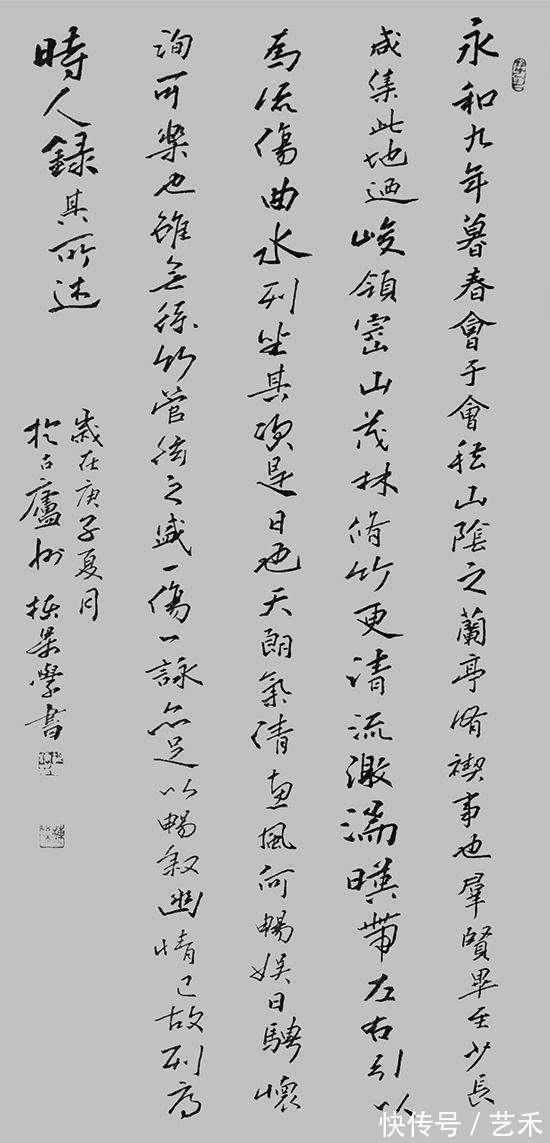 永和九年暮春會于會稽山陰之蘭亭脩禊事也羣賢畢至少長
咸集此地迺峻領崈山茂林脩竹更清流激湍暎帶左右引以
為流傷曲水列坐其次是日也天朗氣清惠風何暢娛日騁懷
洵可樂也雖無絲竹管弦之盛一傷一詠亦足以暢敘幽情已故列為
時人錄其所述
歲在庚子夏月
於古廬州景學書
快传号／艺禾